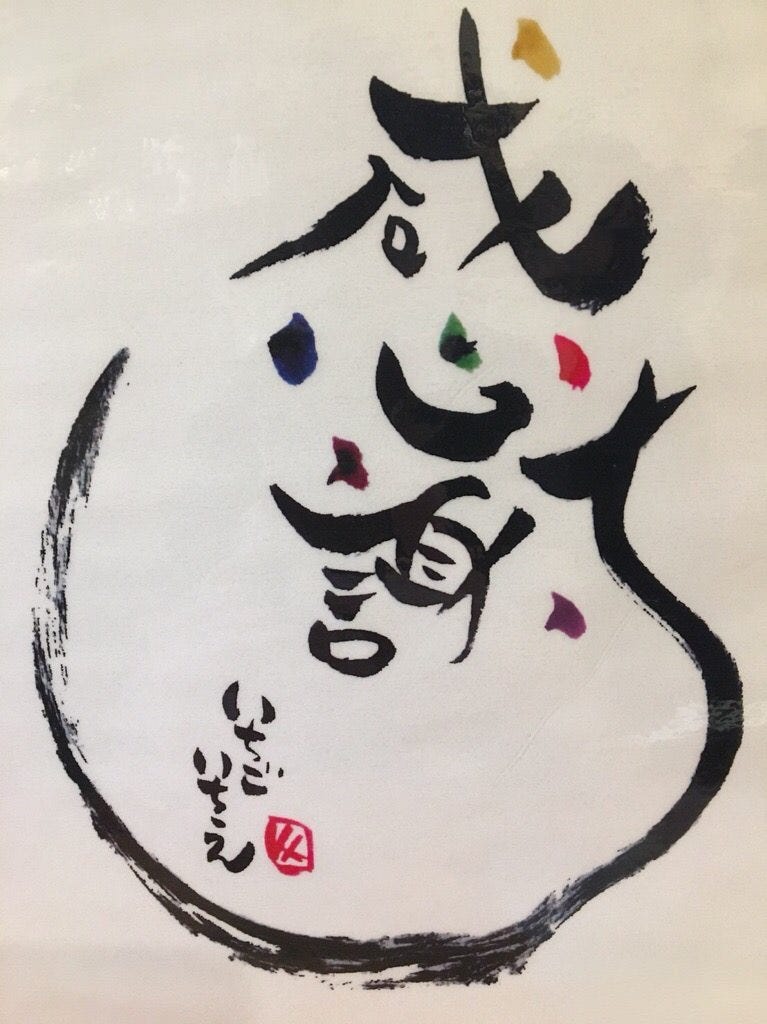 感謝
いちご
いちえ